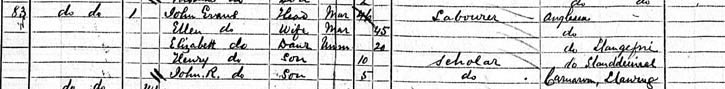 83 do do 1 John Evans Head Mar 46 Labourer Anglesea
Ellen do Wife Mar 45 do
Elizabeth do Daur Unm 20 do Llangefni
Henry do Son 10 Scholar do Llanddeiniol
John. R. do Son 5 do Carnarvon, Llanrug
do do